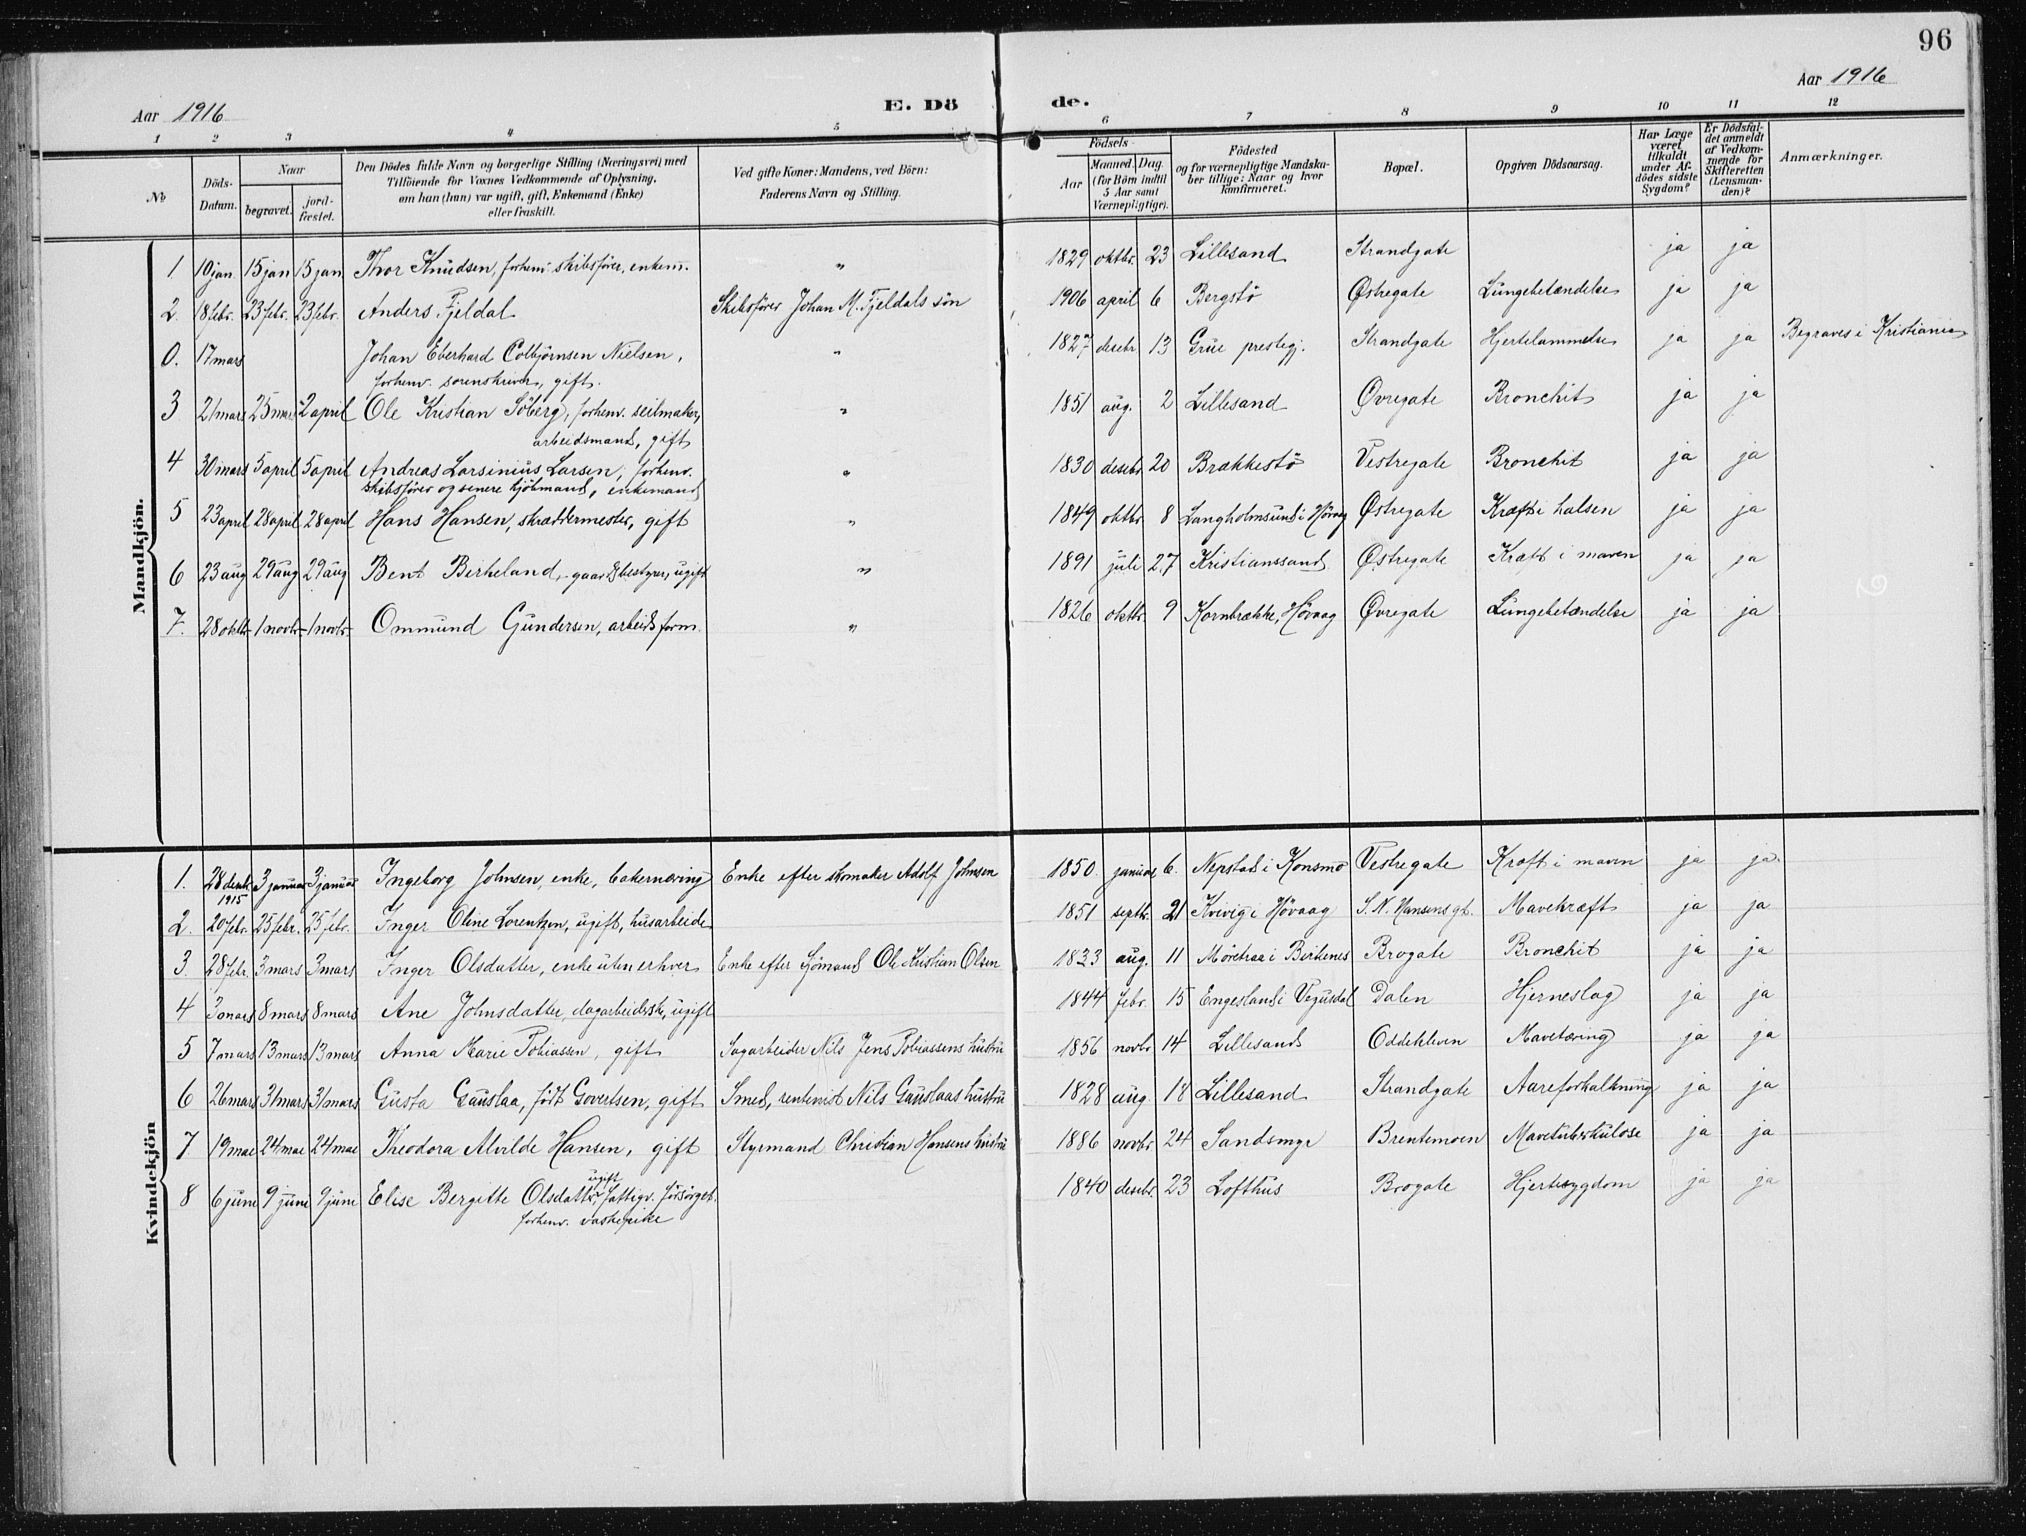 96
Aar 1916
Aar 1916
E. Dö de.
1 2 3 4 5 6 7 8 9 10 11 12
No
Döds-Datum.
Naar
begravet.
jordfæstet.
Den Dödes fulde Navn og borgerlige Stilling (Næringsvei) med
Tilföiende for Voxnes Vedkommende af Oplysning,
om han (hun) var ugift, gift, Enkemand (Enke)
eller fraskilt.
Ved gifte Koner: Mandens, ved Börn:
Faderens Navn og Stilling.
Födsels-
Aar
Maaned. Dag.
(for Börn indtil 5 Aar samt Værnepligtige).
Födested
og for værnepligtige Mandskaber tillige: Naar og hvor konfirmeret.
Bopæl.
Opgiven Dödsaarsag.
Har Læge været tilkaldt under Afdödes sidste Sygdom?
Er Dödsfaldet anmeldt af Vedkommende for Skifteretten (Lensmanden)?
Anmærkninger.
Mandkjön.
1 10 jan. 15 jan 15 jan Thor Knudsen, forhenv. skibsförer, enkem. " 1829 oktbr. 23 Lillesand Strandgate ja ja
2. 18 febr. 23 febr. 23 febr. Anders Fjeldal Skibsförer Johan M. Fjeldals sön 1906 april 6 Bergstö Østregate Lungebetændelse ja ja
0. 17 mars Johan Eberhard Colbjørnsen Nielsen, " 1827 desebr 13 Grue prestegj. Strandgate Hjertelammelse ja ja Begraves i Kristiania
forhenv. sorenskriver, gift.
3 21 mars 25 mars 2 april Ole Kristian Söberg, forhenv. seilmaker, " 1851 aug. 2 Lillesand Øvregate Bronchit ja ja
arbeidsmand, gift
4 30 mars 5 april 5 april Andreas Larsinius Larsen, forhenv. " 1830 desebr 20 Brækkestö Vestregate Bronchit ja ja
skibsförer og senere kjöbmand, enkemand
5 23 april 28 april 28 april Hans Hansen, skræddermester, gift " 1849 oktbr. 8 Langholmsund i Høvaag Østregate Kræft i halsen ja ja
6 23 aug 29 aug 29 aug Bent Birkeland, gaardsbestyrer, ugift " 1891 juli 27 Kristianssand Østregate Kræft i maven ja ja
7. 28 oktbr 1 novbr 1 novbr. Ommund Gundersen, arbeidsform. " 1826 oktbr. 9 Kornbrække, Høvaag Øvregate Lungebetændelse ja ja
Kvindekjön
1. 28 desbr. 1915 3 januar 3 januar Ingeborg Johnsen, enke, bakernæring Enke efter skomaker Adolf Johnsen 1850. januar 6. Nepstad i Konsmo Vestregate Kræft i maven ja ja.
2. 20 febr. 25 febr. 25 febr. Inger Oline Lorentzen, ugift, husarbeide 1851 septbr. 21 Kvivig i Høvaag S. N. Hansens gt. Mavekræft ja ja
3. 28 febr. 3 mars 3 mars Inger Olsdatter, enke uten erhver Enke efter Sjömand Ole Kristian Olsen 1833 aug. 11 Møretraa i Birkenes Brogate Bronchit ja ja
4 3 mars 8 mars 8 mars Ane Johnsdatter, dagarbeiderske, ugift 1844 febr. 15 Engesland i Vegusdal Dalen Hjerneslag ja ja
5 7 mars 13 mars 13 mars Anna Marie Tobiassen, gift Sagarbeider Nils Jens Tobiassens hustru 1856 novbr 14 Lillesand Oddekleven Mavetæring ja ja
6 26 mars 31 mars 31 mars Gusta Gauslaa, født Govertsen, gift Smed, rentenist Nils Gauslaas hustru 1828 aug 18 Lillesand Strandgate Aareforkalkning ja ja
7 19 mai 24 mai 24 mai Theodora Alvilde Hansen, gift Styrmand Christian Hansens hustru 1886 novbr 24 Sandsmyr Brentemoen Mavetuberkulose ja ja
8 6 juni 9 juni 9 juni Elise Bergitte Olsdatter, ugift, fattigv. forsörget. 1840 desebr. 23 Lofthus Brogate Hjertesygdom ja ja
forhenv. vaskepike